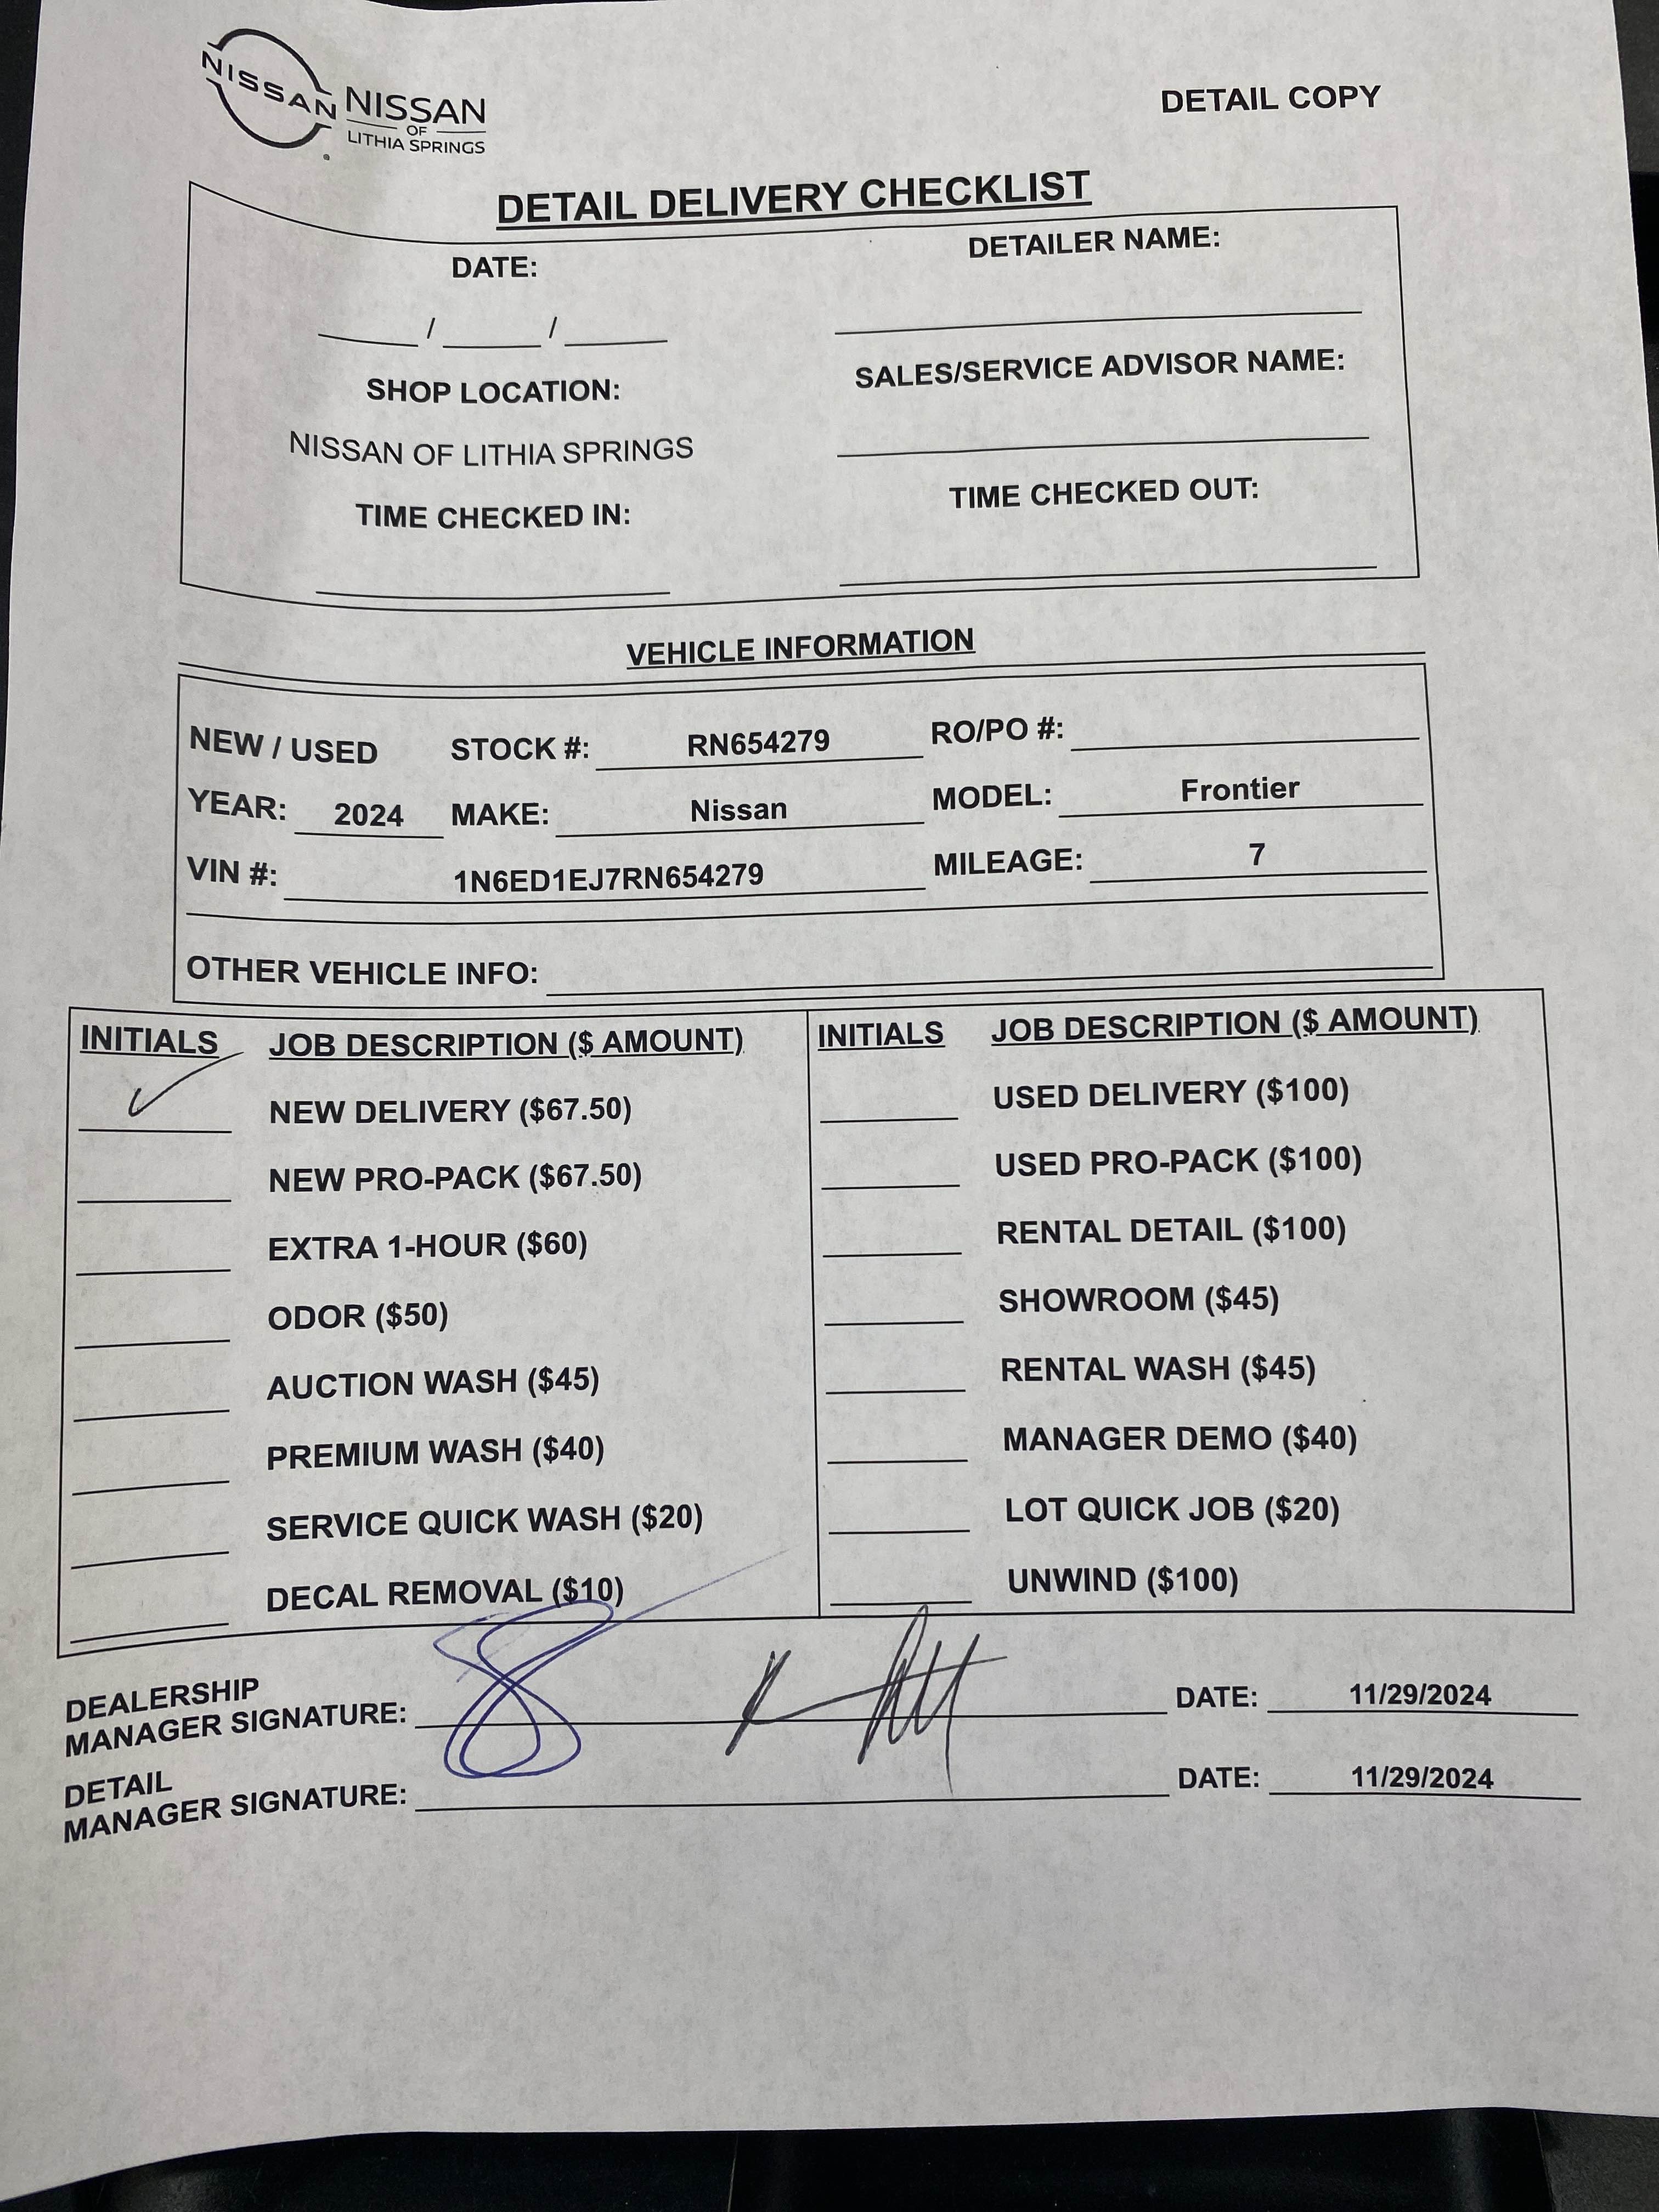 NISSAN NISSAN
OF
LITHIA SPRINGS
DETAIL COPY
DETAIL DELIVERY CHECKLIST
DATE: DETAILER NAME:
/ /
SHOP LOCATION: SALES/SERVICE ADVISOR NAME:
NISSAN OF LITHIA SPRINGS
TIME CHECKED IN: TIME CHECKED OUT:
VEHICLE INFORMATION
NEW / USED STOCK #: RN654279 RO/PO #:
YEAR: 2024 MAKE: Nissan MODEL: Frontier
VIN #: 1N6ED1EJ7RN654279 MILEAGE: 7
OTHER VEHICLE INFO:
INITIALS JOB DESCRIPTION ($ AMOUNT) INITIALS JOB DESCRIPTION ($ AMOUNT)
✓ NEW DELIVERY ($67.50) USED DELIVERY ($100)
NEW PRO-PACK ($67.50) USED PRO-PACK ($100)
EXTRA 1-HOUR ($60) RENTAL DETAIL ($100)
ODOR ($50) SHOWROOM ($45)
AUCTION WASH ($45) RENTAL WASH ($45)
PREMIUM WASH ($40) MANAGER DEMO ($40)
SERVICE QUICK WASH ($20) LOT QUICK JOB ($20)
DECAL REMOVAL ($10) UNWIND ($100)
DEALERSHIP
MANAGER SIGNATURE: DATE: 11/29/2024
DETAIL
MANAGER SIGNATURE: DATE: 11/29/2024